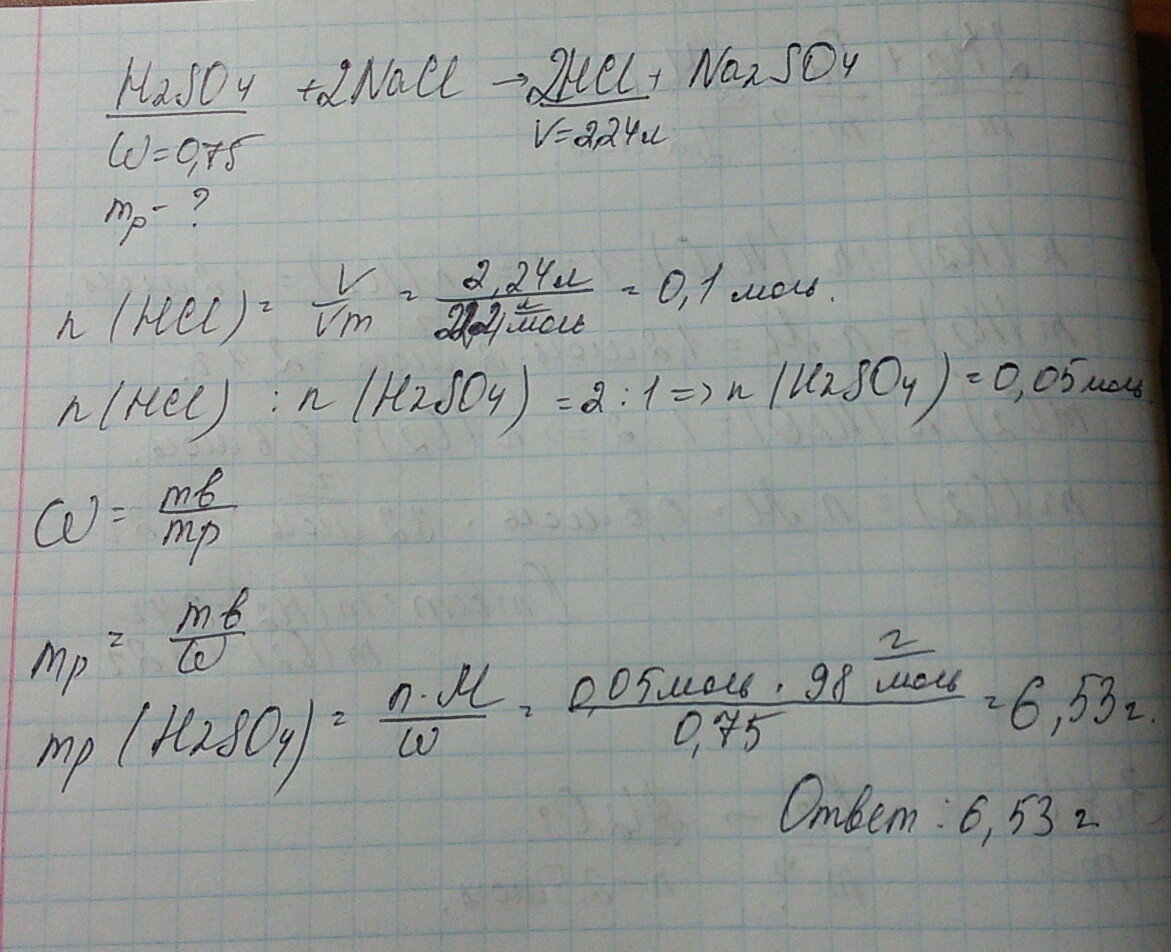 H2SO4 + 2NaCl → 2HCl + Na2SO4
ω = 0,75 V = 2,24 л
mр - ?
n (HCl) = V/Vm = 2,24 л / 22,4 л/моль = 0,1 моль.
n (HCl) : n (H2SO4) = 2 : 1 => n (H2SO4) = 0,05 моль.
ω = mв/mр
mр = mв/ω
mр (H2SO4) = n · M/ω = 0,05 моль · 98 г/моль / 0,75 = 6,53 г.
Ответ : 6,53 г